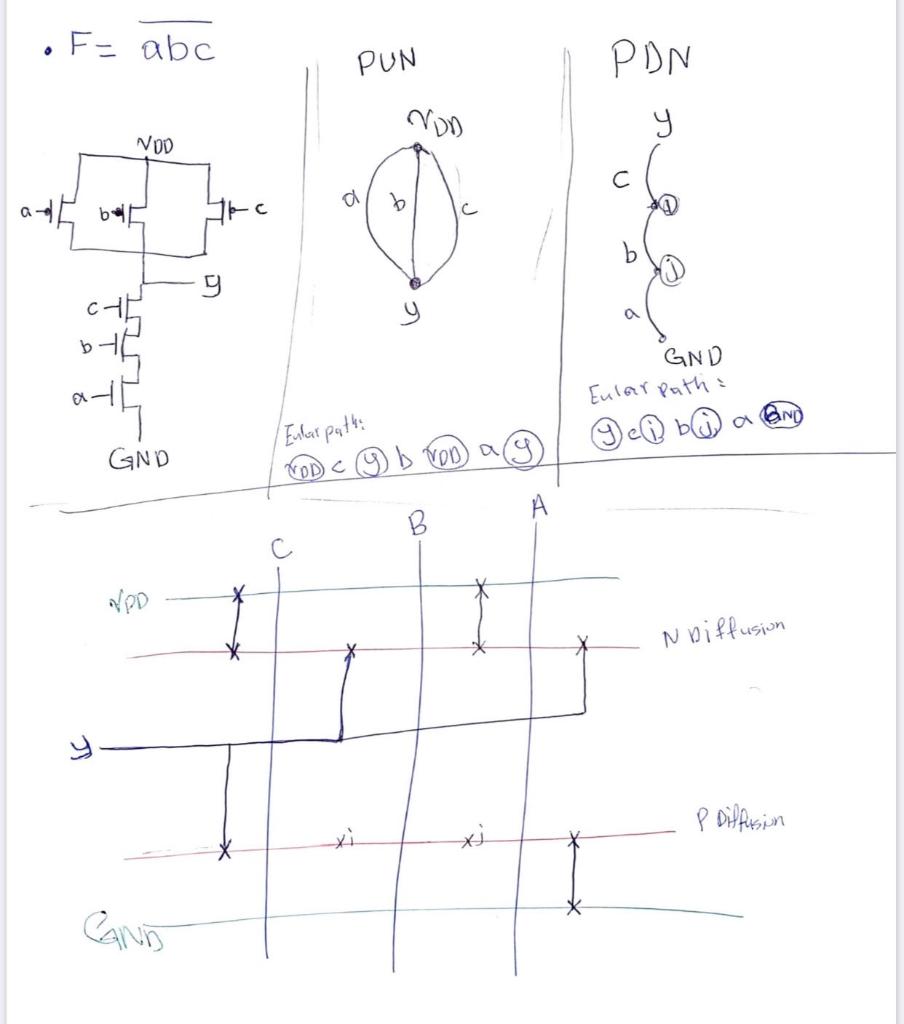 . F = \overline{abc}
PUN
PDN
VDD
a
b
c
y
c
b
a
GND
VDD
a
b
c
y
Eular path:
VDD c y b VDD a y
y
c
i
b
j
a
GND
Eular path:
y c i b j a GND
C
B
A
VDD
N Diffusion
y
xi
xj
P Diffusion
GND